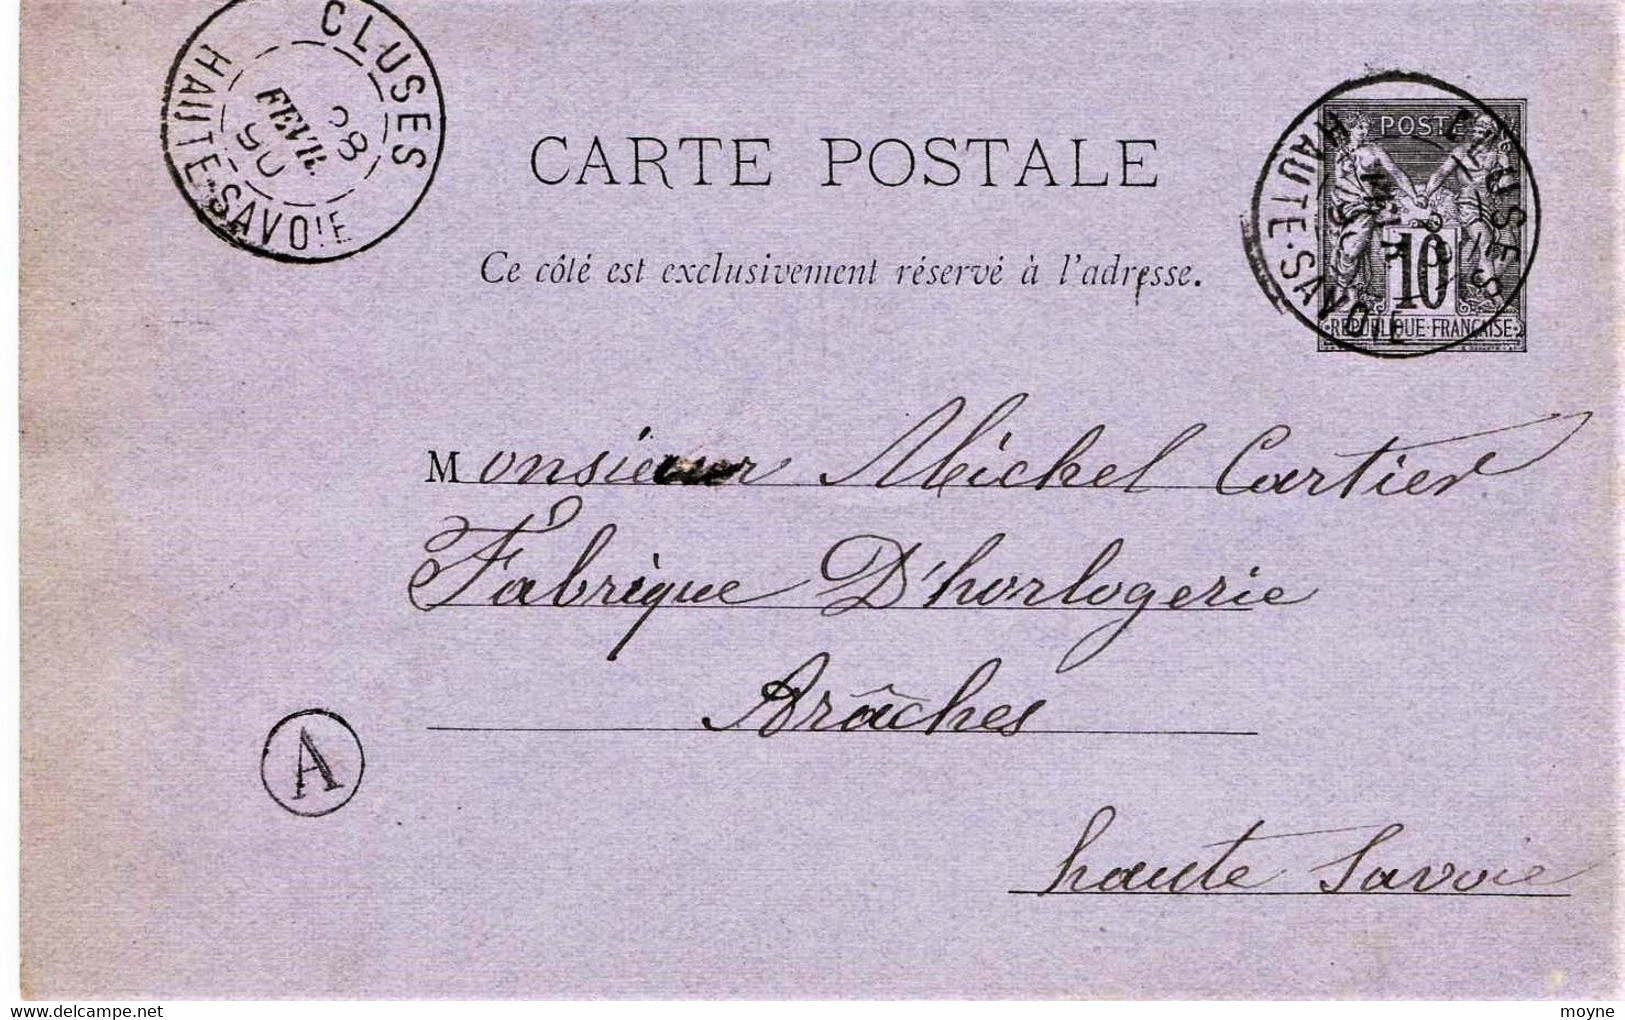 CLUSES
28
FEVR.
90
HAUTE-SAVOIE
CARTE POSTALE
Ce côté est exclusivement réservé à l'adresse.
POSTE
10
REPUBLIQUE FRANÇAISE
CLUSES
HAUTE-SAVOIE
Monsieur Michel Cartier
Fabrique D'horlogerie
Arâches
A
haute Savoie
www.delcampe.net
moyne